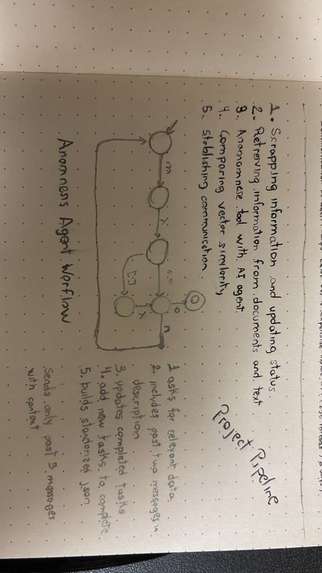 Project Pipeline
1. Scrapping information and updating status
2. Retreving information from documents and text
3. Anamnese tool with AI agent
4. Comparing vector similarity
5. Stablishing communication
m
y
c=
[]
y
o
n
Anamnens Agent Worflow
1 asks for relevant data
2. includes past two messages in
description
3. updates completed tasks
4. add new tasks to complete
5. builds standarized json
Sends only past 3 messages
with context